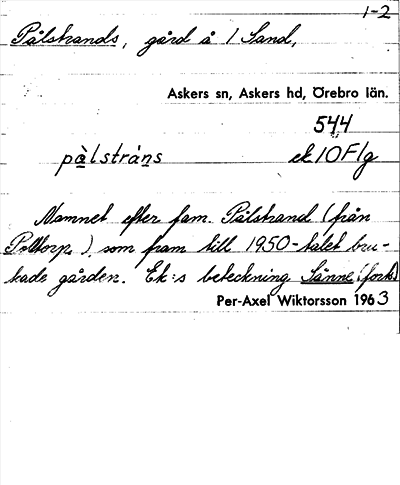 1-2
Pålstrands, gård å 1 Sand,
Askers sn, Askers hd, Örebro län.
544
pàlstráns ek 10 F1g
Namnet efter fam. Pålstrand (från
), som fram till 1950-talet bru-
kade gården. Ek:s beteckning Sänne (fork)
Per-Axel Wiktorsson 1963